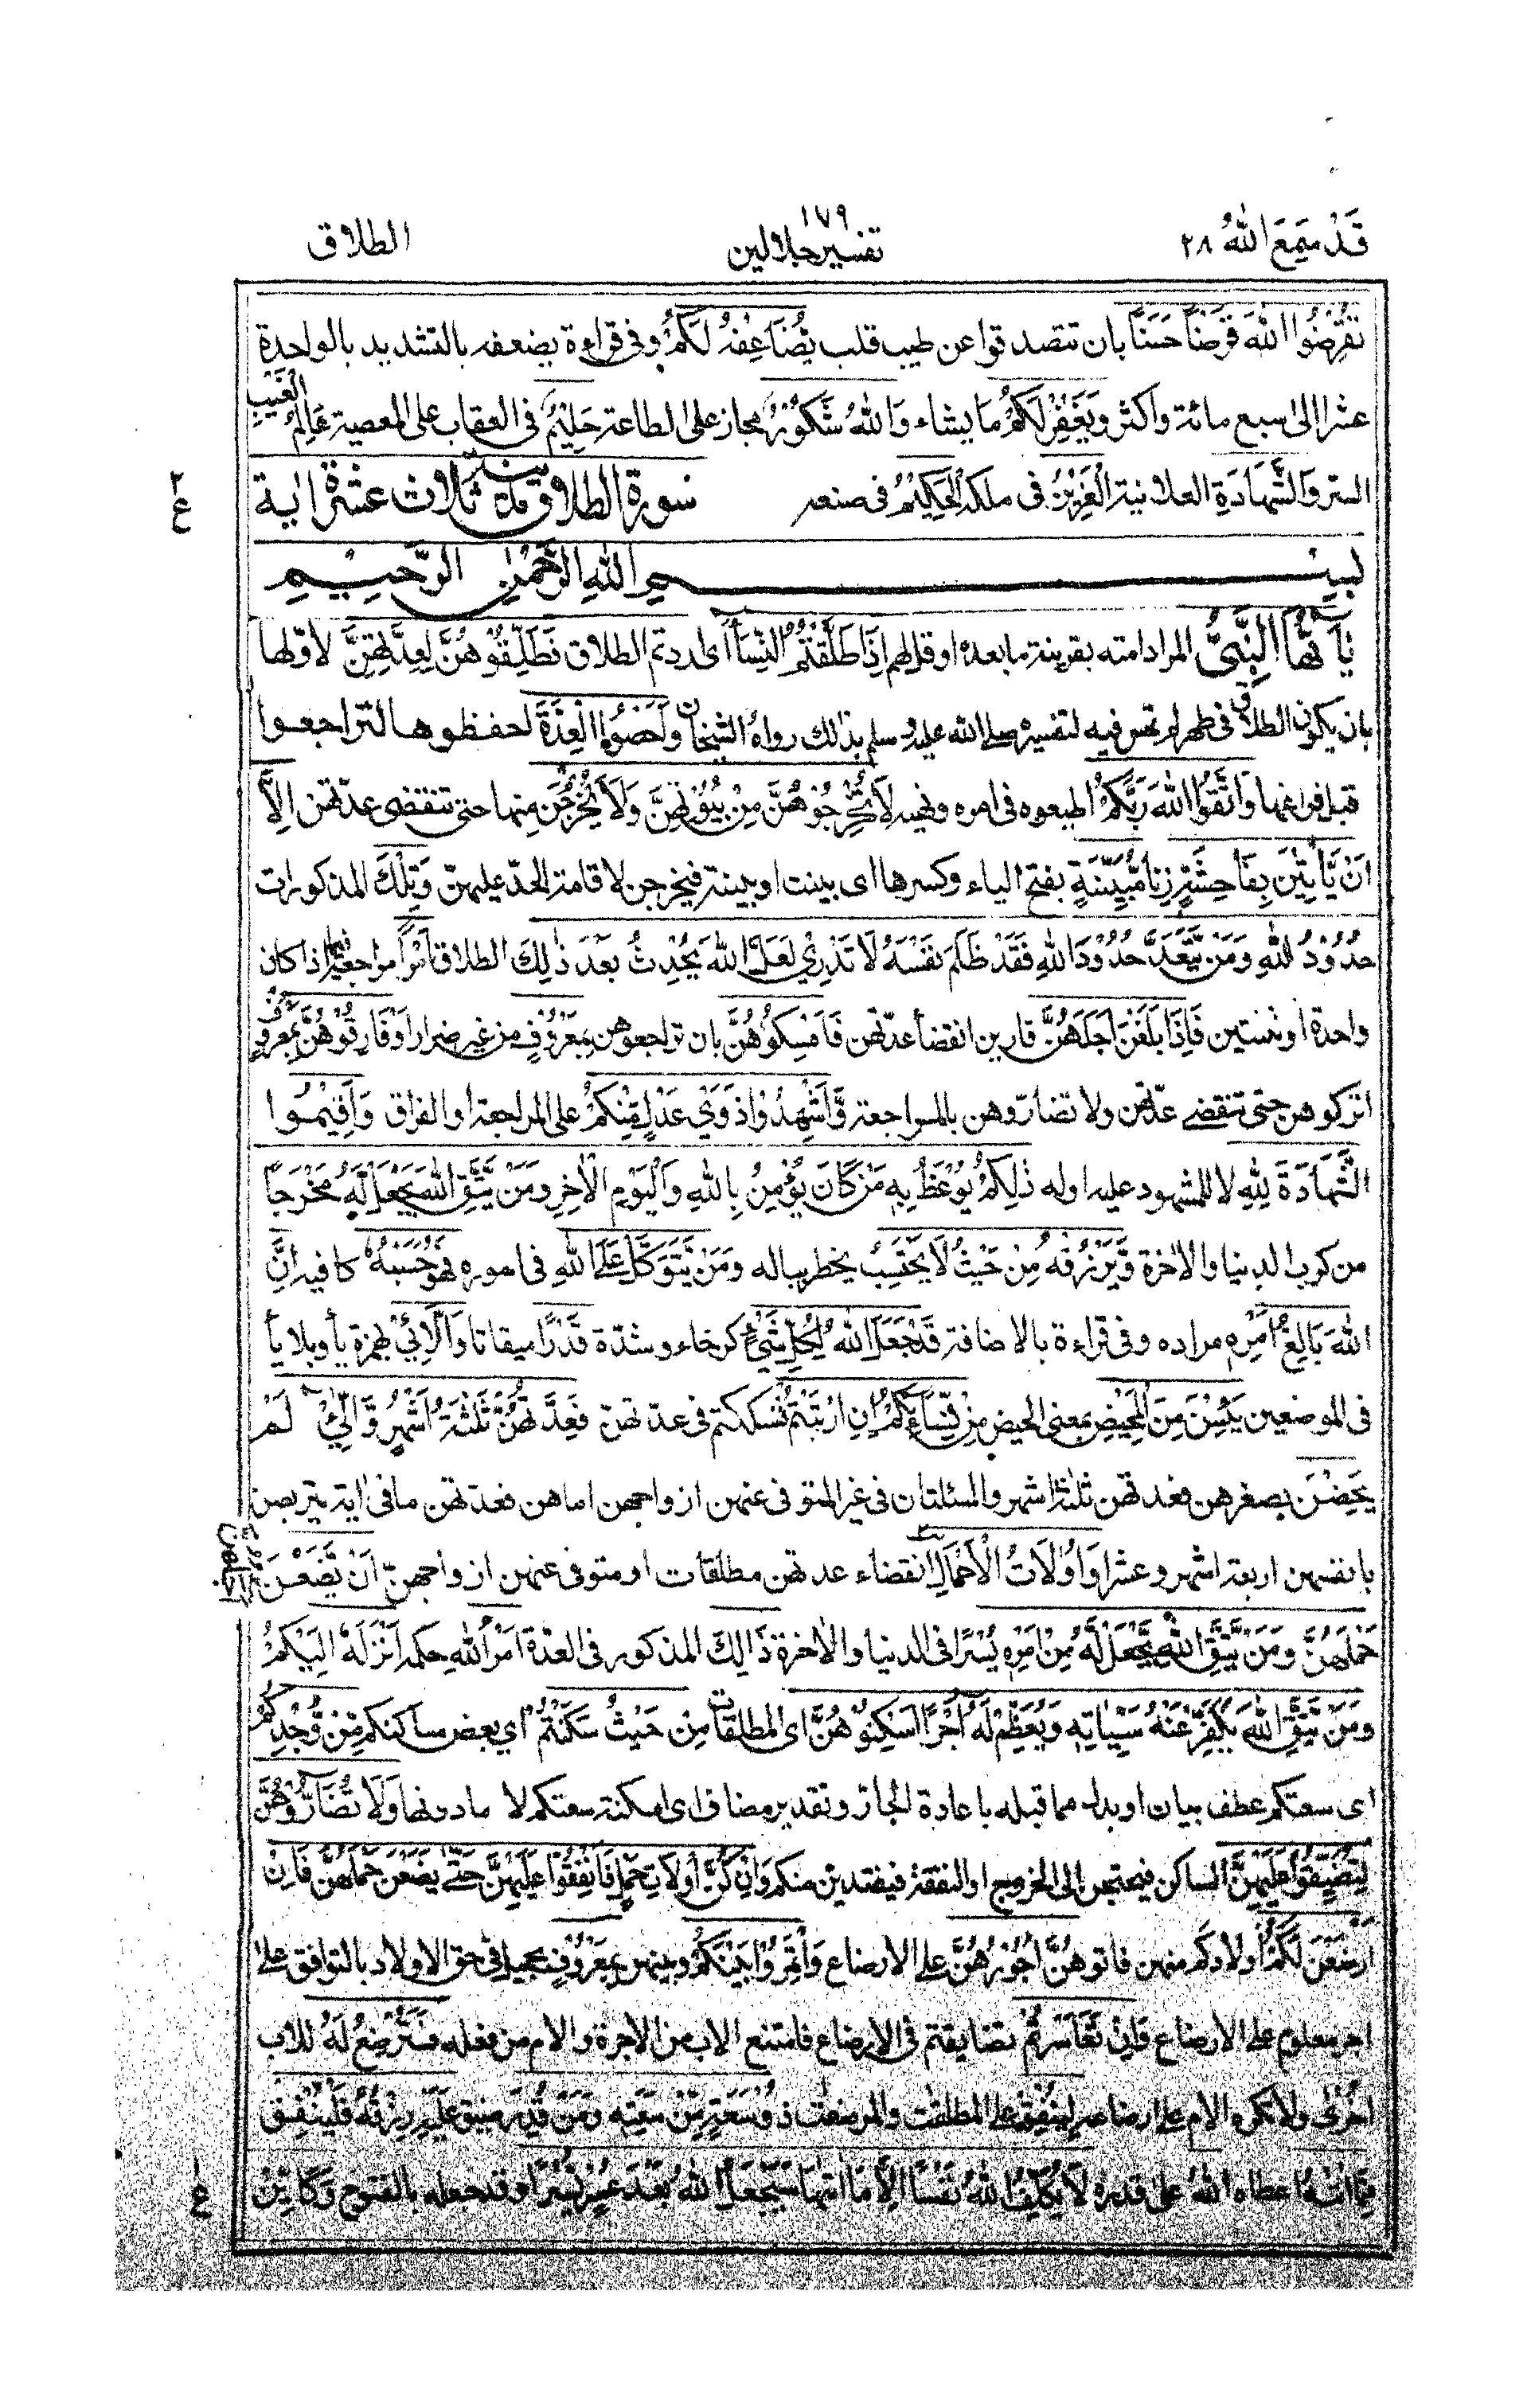 قَدْ سَمِعَ اللهُ ٢٨
١٧٩
تفسير جلالين
الطلاق
تُقْرِضُوا اللهَ قَرْضًا حَسَنًا بان تتصدقوا عن طيب قلب يُّضَاعِفْهُ لَكُمْ وفى قراءة يضعفه بالتشديد بالواحدة
عشرا الى سبع مائة واكثر وَيَغْفِرْ لَكُمْ ما يشاء وَاللهُ شَكُوْرٌ مجاز على الطاعة حَلِيْمٌ فى العقاب على المعصية عَالِمُ الْغَيْبِ
السر وَالشَّهَادَةِ العلانية الْعَزِيْزُ فى ملكه الْحَكِيْمُ فى صنعه سورة الطلاق مدنية ثلاث عشرة اية
٢
ع
بِسْمِ اللهِ الرَّحْمٰنِ الرَّحِيْمِ
يٰاَيُّهَا النَّبِيُّ المراد امته بقرينة ما بعده او قل لهم اِذَا طَلَّقْتُمُ النِّسَاءَ اى اردتم الطلاق فَطَلِّقُوْهُنَّ لِعِدَّتِهِنَّ لاولها
بان يكون الطلاق فى طهر لم تمس فيه لتفسيره صلى الله عليه وسلم بذلك رواه الشيخان وَاَحْصُوا الْعِدَّةَ احفظوها لتراجعوا
قبل فراغها وَاتَّقُوا اللهَ رَبَّكُمْ اطيعوه فى امره ونهيه لَا تُخْرِجُوْهُنَّ مِنْ بُيُوْتِهِنَّ وَلَا يَخْرُجْنَ منها حتى تنقضى عدتهن اِلَّا
اَنْ يَّأْتِيْنَ بِفَاحِشَةٍ زنا مُّبَيِّنَةٍ بفتح الياء وكسرها اى بينت او بينة فيخرجن لاقامة الحد عليهن وَتِلْكَ المذكورات
حُدُوْدُ اللهِ وَمَنْ يَّتَعَدَّ حُدُوْدَ اللهِ فَقَدْ ظَلَمَ نَفْسَهٗ لَا تَدْرِيْ لَعَلَّ اللهَ يُحْدِثُ بَعْدَ ذٰلِكَ الطلاق اَمْرًا مراجعة فيما اذا كان
واحدة او ثنتين فَاِذَا بَلَغْنَ اَجَلَهُنَّ قاربن انقضاء عدتهن فَاَمْسِكُوْهُنَّ بان تراجعوهن بِمَعْرُوْفٍ من غير ضرار اَوْ فَارِقُوْهُنَّ بِمَعْرُوْفٍ
اتركوهن حتى تنقضى عدتهن ولا تضاروهن بالمراجعة وَّاَشْهِدُوْا ذَوَيْ عَدْلٍ مِّنْكُمْ على المراجعة او الفراق وَاَقِيْمُوا
الشَّهَادَةَ لِلّٰهِ لا للمشهود عليه اوله ذٰلِكُمْ يُوْعَظُ بِهٖ مَنْ كَانَ يُؤْمِنُ بِاللهِ وَالْيَوْمِ الْاٰخِرِ وَمَنْ يَّتَّقِ اللهَ يَجْعَلْ لَّهٗ مَخْرَجًا
من كرب الدنيا والاخرة وَّيَرْزُقْهُ مِنْ حَيْثُ لَا يَحْتَسِبُ يخطر بباله وَمَنْ يَّتَوَكَّلْ عَلَى اللهِ فى اموره فَهُوَ حَسْبُهٗ كافيه اِنَّ
اللهَ بَالِغٌ اَمْرِهٖ مراده وفى قراءة بالاضافة قَدْ جَعَلَ اللهُ لِكُلِّ شَيْءٍ كرخاء وشدة قَدْرًا ميقاتا وَالّٰٓـِٔيْ بهمزة ياء وبلا ياء
فى الموضعين يَئِسْنَ مِنَ الْمَحِيْضِ بمعنى الحيض مِنْ نِّسَاءِكُمْ اِنِ ارْتَبْتُمْ شككتم فى عدتهن فَعِدَّتُهُنَّ ثَلٰثَةُ اَشْهُرٍ وَّالّٰٓـِٔيْ لَمْ
يَحِضْنَ لصغرهن فعدتهن ثلثة اشهر والمسئلتان فى غير المتوفى عنهن ازواجهن اما هن فعدتهن ما فى اية يتربصن
بانفسهن اربعة اشهر وعشرا وَاُولَاتُ الْاَحْمَالِ انقضاء عدتهن مطلقات او متوفى عنهن ازواجهن اَنْ يَّضَعْنَ
حَمْلَهُنَّ وَمَنْ يَّتَّقِ اللهَ يَجْعَلْ لَّهٗ مِنْ اَمْرِهٖ يُسْرًا فى الدنيا والاخرة ذَالِكَ المذكور فى العدة اَمْرُ اللهِ حكمه اَنْزَلَهٗ اِلَيْكُمْ
وَمَنْ يَّتَّقِ اللهَ يُكَفِّرْ عَنْهُ سَيِّاٰتِهٖ وَيُعْظِمْ لَهٗ اَجْرًا اَسْكِنُوْهُنَّ اى المطلقات مِنْ حَيْثُ سَكَنْتُمْ اى بعض مساكنكم مِّنْ وُّجْدِكُمْ
اى سعتكم عطف بيان او بدل مما قبله باعادة الجار وتقدير مضاف اى امكنة سعتكم لا ما دونها وَلَا تُضَارُّوْهُنَّ
لِتُضَيِّقُوْا عَلَيْهِنَّ المساكن فيحتجن الى الخروج او النفقة فيفتدين منكم وَاِنْ كُنَّ اُولَاتِ حَمْلٍ فَاَنْفِقُوْا عَلَيْهِنَّ حَتّٰى يَضَعْنَ حَمْلَهُنَّ فَاِنْ
اَرْضَعْنَ لَكُمْ اولادكم منهن فاتوهُنَّ اُجُوْرَهُنَّ على الارضاع وَأْتَمِرُوْا بَيْنَكُمْ وبينهن بِمَعْرُوْفٍ بجميل فى حق الاولاد بالتوافق على
اجر معلوم على الارضاع فَاِنْ تَعَاسَرْتُمْ تضايقتم فى الارضاع فامتنع الاب من الاجرة والام من فعله فَسَتُرْضِعُ لَهٗ للاب
اُخْرٰى ولا تكره الام على ارضاعه لِيُنْفِقْ على المطلقت والمرضعت ذُوْ سَعَةٍ مِّنْ سَعَتِهٖ وَمَنْ قُدِرَ ضيق عَلَيْهِ رِزْقُهٗ فَلْيُنْفِقْ
مِمَّا اٰتٰهُ اعطاه اللهُ على قدره لَا يُكَلِّفُ اللهُ نَفْسًا اِلَّا مَا اٰتٰهَا سَيَجْعَلُ اللهُ بَعْدَ عُسْرٍ يُّسْرًا وقد جعله بالفتوح وَكَاَيِّنْ
ع